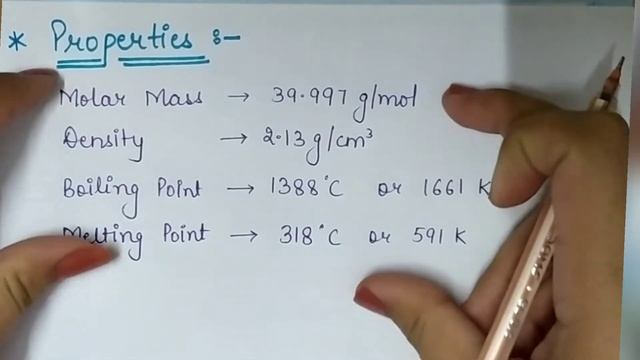 * Properties :-
Molar Mass → 39.997 g/mol
Density → 2.13 g/cm³
Boiling Point → 1388°C or 1661 K
Melting Point → 318°C or 591 K